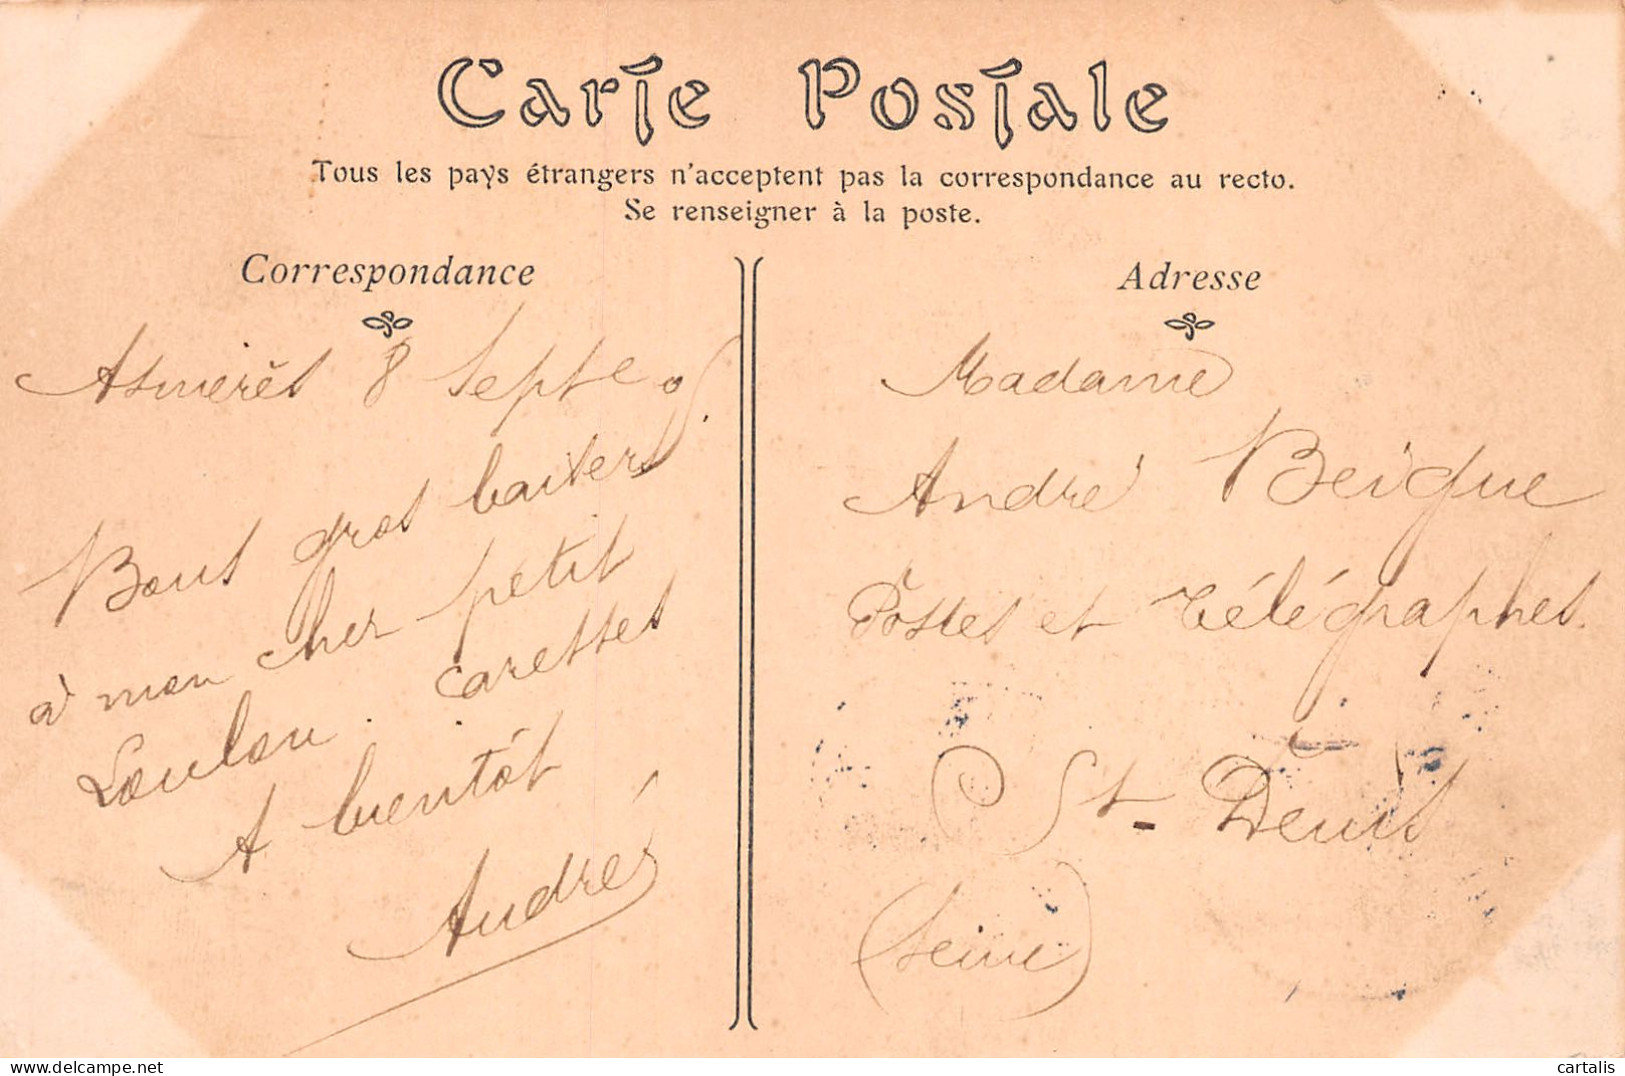 Carte Postale
Tous les pays étrangers n'acceptent pas la correspondance au recto.
Se renseigner à la poste.
Correspondance
Asnierès 8 Septe 05.
Bons gros baisers
à mon cher petit
Loulou. caresses
A bientôt
André
Adresse
Madame
André Beique
Postes et Télégraphes.
St-Denis
(Seine)
www.delcampe.net
cartalis